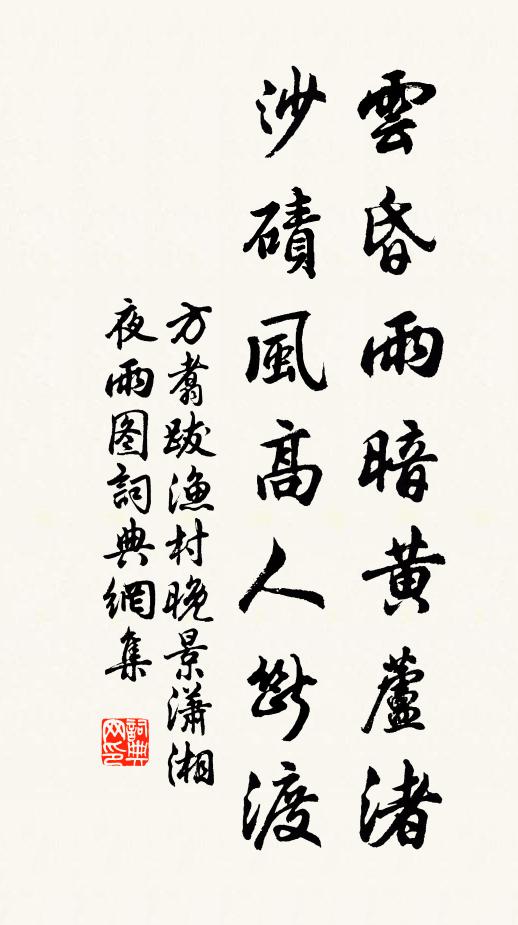 雲昏雨暗黄蘆渚
沙磧風高人斷渡
方翥跋漁村晚景瀟湘
夜雨图詞典網集
詞典網印